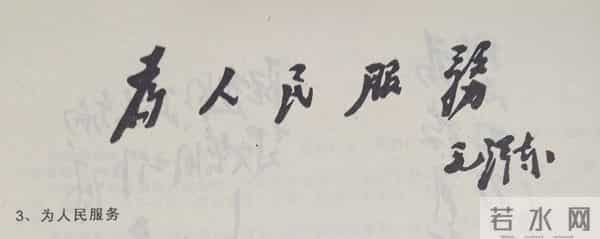 為人民服務
毛泽东
3、为人民服务
若水网